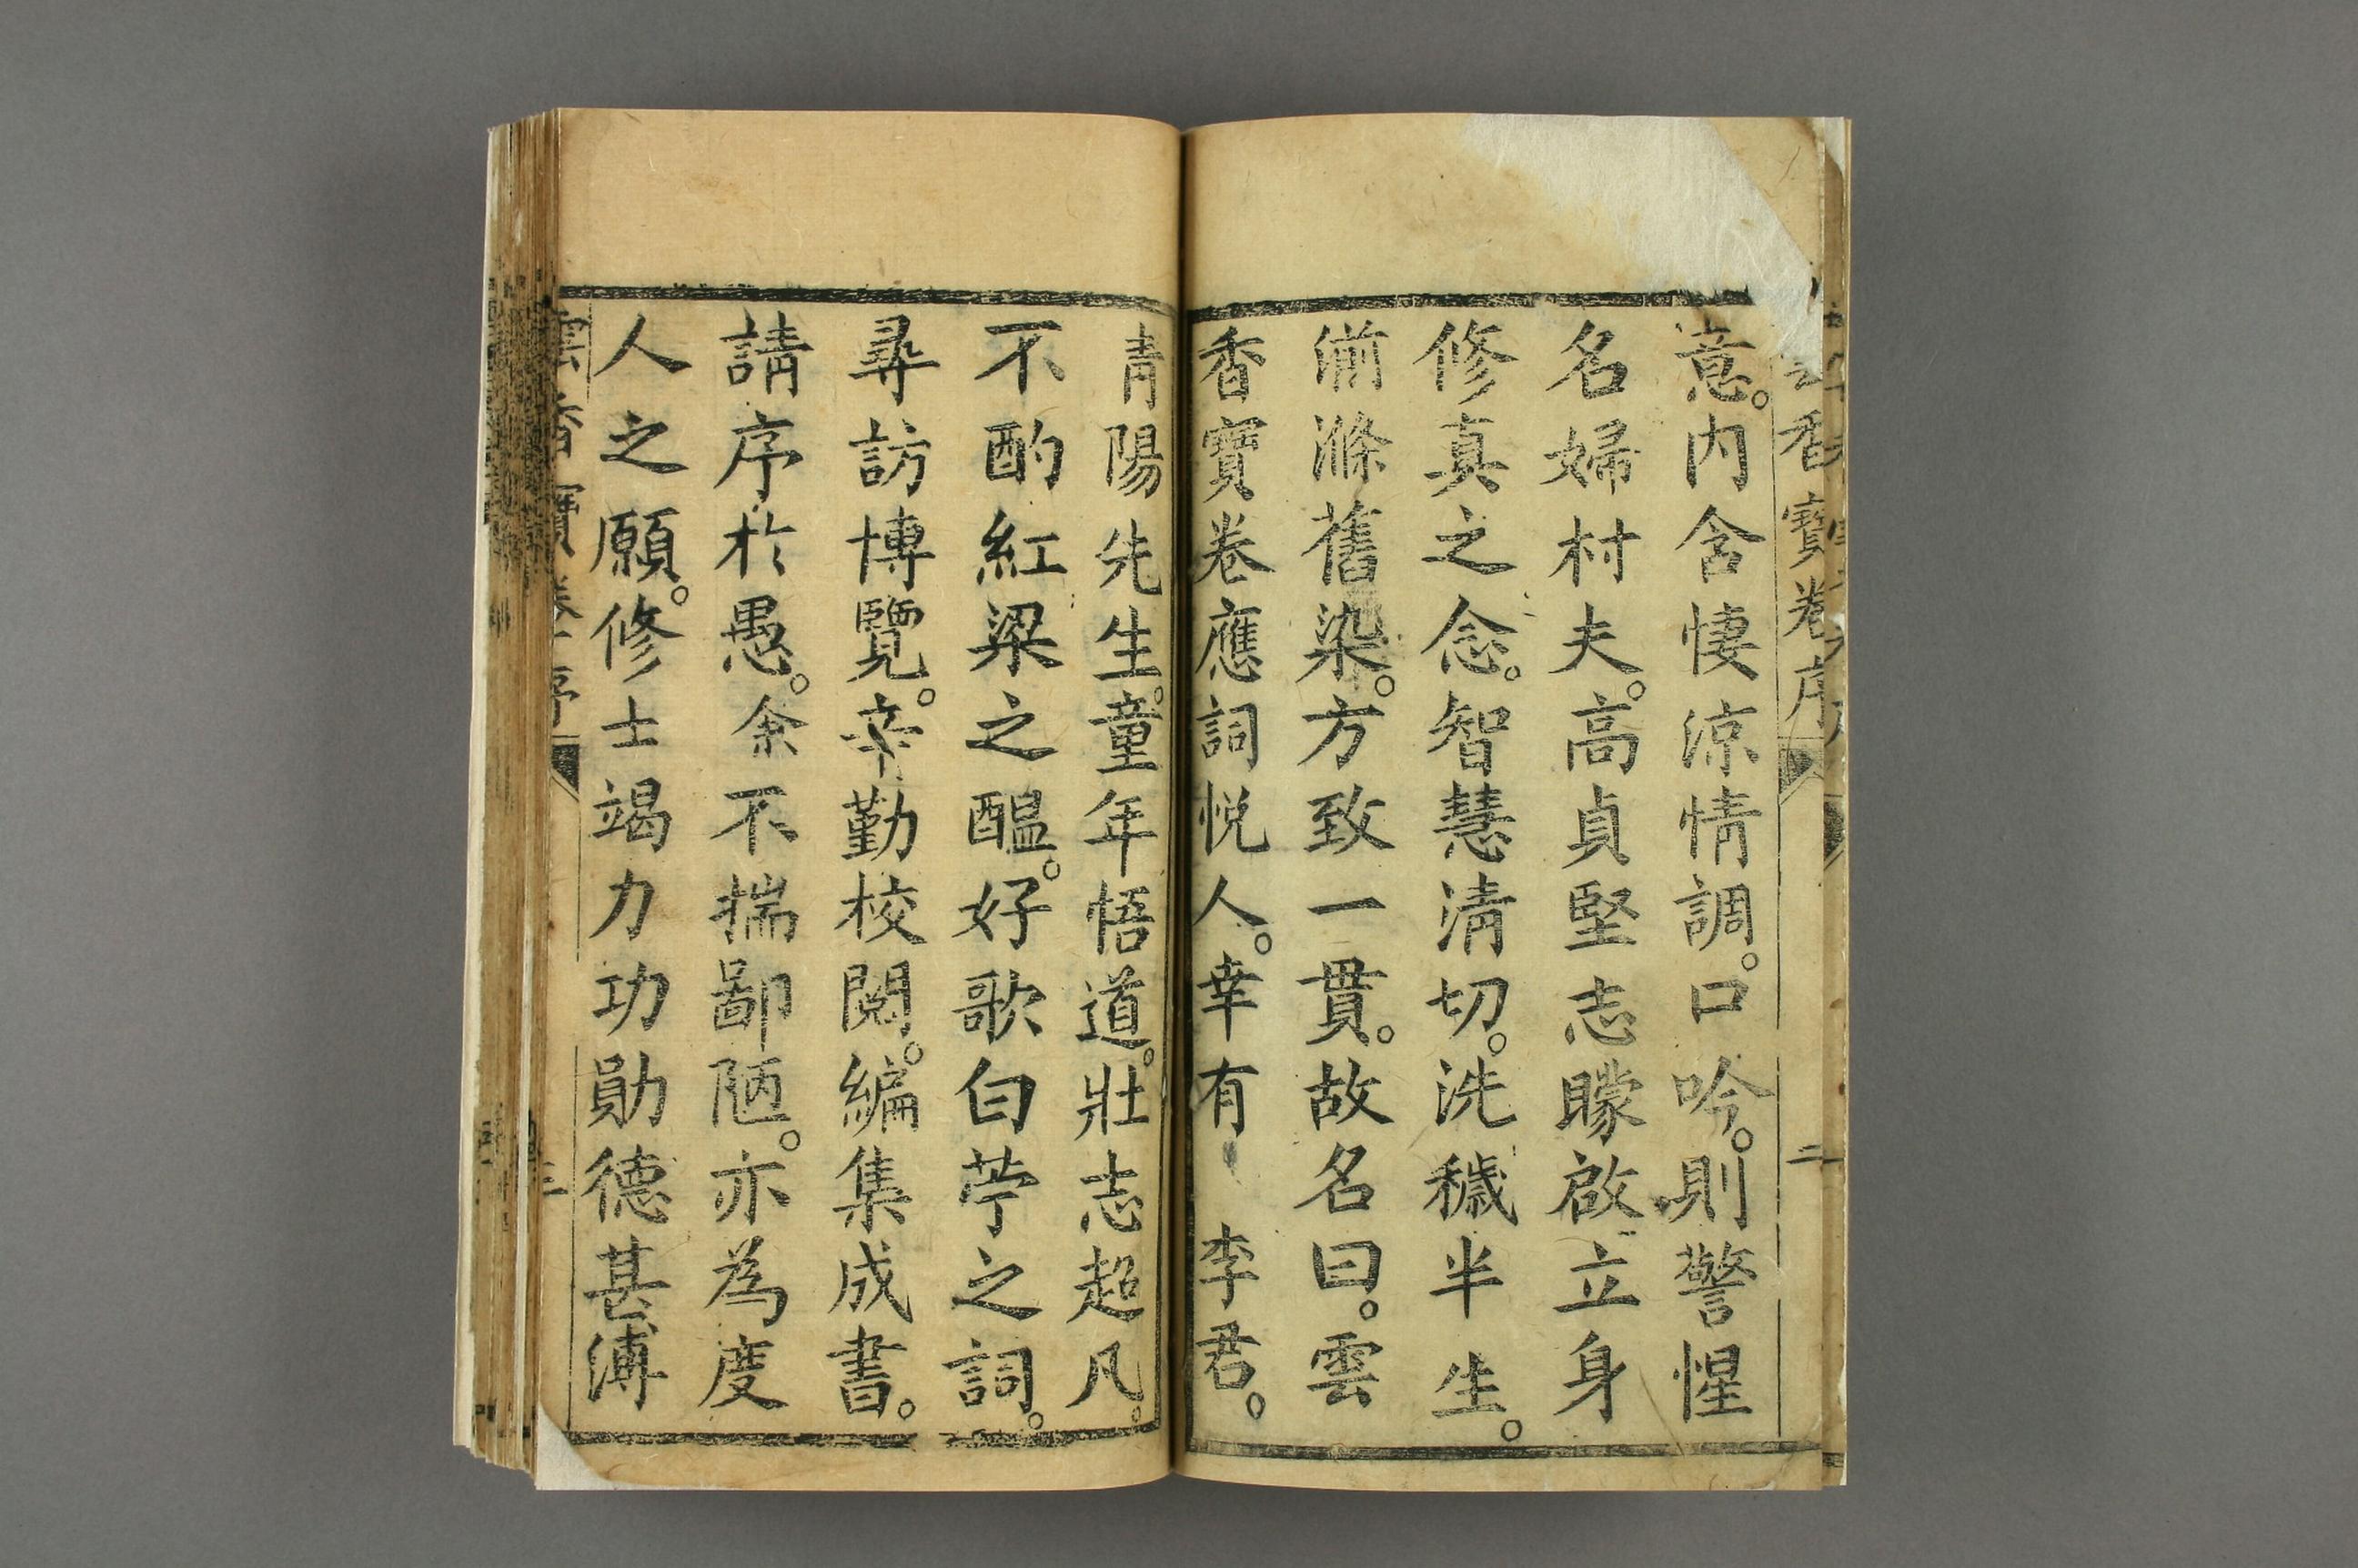 香寶卷序
二
意。内含悽涼情調。口吟。則警惺
名婦村夫。高貞堅志矇啟立身
修真之念。智慧清切。洗穢半生。
湔滌舊染。方致一貫。故名曰。雲
香寶卷應詞悅人。幸有 李君。
青陽先生。童年悟道。壯志超凡。
不酌紅梁之醞。好歌白苧之詞。
尋訪博覽。辛勤校閱。編集成書。
請序於愚。余不揣鄙陋。亦為度
人之願。修士竭力功勛德甚溥